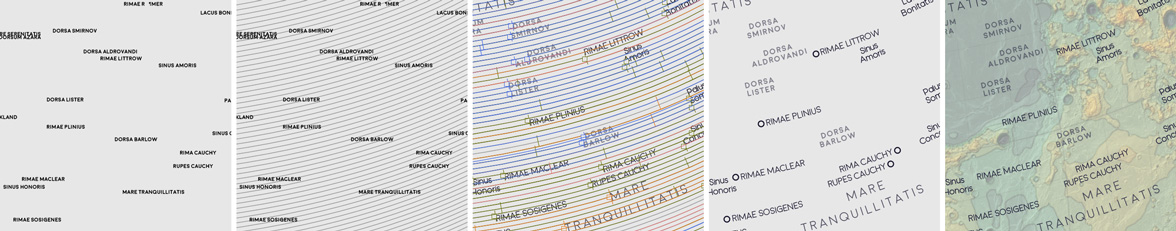 RIMAE R MER
LACUS BON
DORSA SMIRNOV
SERENITATIS
DORSUM AZARA
DORSA ALDROVANDI
RIMAE LITTROW
SINUS AMORIS
DORSA LISTER
PA
KLAND
RIMAE PLINIUS
SINUS C
DORSA BARLOW
RIMA CAUCHY
RUPES CAUCHY
RIMAE MACLEAR
SINUS HONORIS
MARE TRANQUILLITATIS
RIMAE SOSIGENES
RIMAE R MER
LACUS BON
DORSA SMIRNOV
SERENITATIS
DORSUM AZARA
DORSA ALDROVANDI
RIMAE LITTROW
SINUS AMORIS
DORSA LISTER
PA
KLAND
RIMAE PLINIUS
DORSA BARLOW
SINUS C
RIMA CAUCHY
RUPES CAUCHY
RIMAE MACLEAR
SINUS HONORIS
MARE TRANQUILLITATIS
RIMAE SOSIGENES
TATIS
Bonitati
UM
RA
DORSA
SMIRNOV
DORSA
ALDROVANDI
RIMAE LITTROW
Sinus
Amoris
DORSA
LISTER
Palu
Som
RIMAE PLINIUS
DORSA
BARLOW
Sinu
Conco
RIMAE MACLEAR
RIMA CAUCHY
RUPES CAUCHY
Sinus
Honoris
MARE
TRANQUILLITATIS
RIMAE SOSIGENES
TATIS
Lacu
Bonitati
UM
RA
DORSA
SMIRNOV
DORSA
ALDROVANDI
RIMAE LITTROW
Sinus
Amoris
DORSA
LISTER
Palu
Som
RIMAE PLINIUS
DORSA
BARLOW
Sinu
Conco
RIMA CAUCHY
RUPES CAUCHY
RIMAE MACLEAR
Sinus
Honoris
MARE
TRANQUILLITATIS
RIMAE SOSIGENES
TATIS
Lacu
Bonitati
UM
RA
DORSA
SMIRNOV
DORSA
ALDROVANDI
RIMAE LITTROW
Sinus
Amoris
DORSA
LISTER
Palu
Som
RIMAE PLINIUS
DORSA
BARLOW
Sinu
Conco
RIMA CAUCHY
RUPES CAUCHY
RIMAE MACLEAR
Sinus
Honoris
MARE
TRANQUILLITATIS
RIMAE SOSIGENES